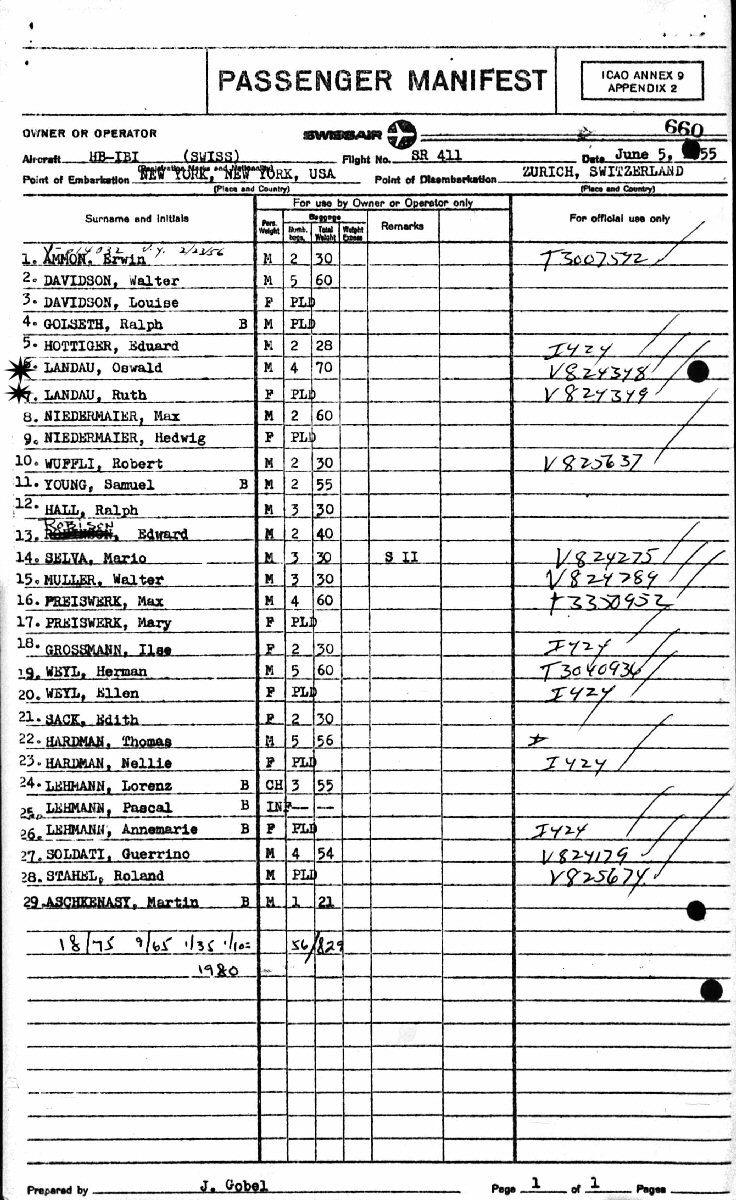 PASSENGER MANIFEST
ICAO ANNEX 9
APPENDIX 2
660
OWNER OR OPERATOR SWISSAIR
Aircraft HB-IBI (SWISS) Flight No. SR 411 Date June 5, 55
(Registration Marks and Nationality)
Point of Embarkation NEW YORK, NEW YORK, USA Point of Disembarkation ZURICH, SWITZERLAND
(Place and Country) (Place and Country)
For use by Owner or Operator only
Surname and initials Pers. Weight Baggage Remarks For official use only
Numb. bags. Total Weight Weight Excess
V-014032 V.Y. 2/23/56
1. AMMON, Erwin M 2 30 T3007572
2. DAVIDSON, Walter M 5 60
3. DAVIDSON, Louise F PLD
4. GOLSETH, Ralph B M PLD
5. HOTTIGER, Eduard M 2 28 I424
6. LANDAU, Oswald M 4 70 V824348
7. LANDAU, Ruth F PLD V824349
8. NIEDERMAIER, Max M 2 60
9. NIEDERMAIER, Hedwig F PLD
10. WUFFLI, Robert M 2 30 V825637
11. YOUNG, Samuel B M 2 55
12. HALL, Ralph M 3 30
ROBISON
13. ROBINSON, Edward M 2 40
14. SELVA, Mario M 3 30 S II V824275
15. MULLER, Walter M 3 30 V824789
16. PREISWERK, Max M 4 60 T3350952
17. PREISWERK, Mary F PLD
18. GROSSMANN, Ilse F 2 30 I424
19. WEYL, Herman M 5 60 T3040936
20. WEYL, Ellen F PLD I424
21. SACK, Edith F 2 30
22. HARDMAN, Thomas M 5 56
23. HARDMAN, Nellie F PLD I424
24. LEHMANN, Lorenz B CH 3 55
25. LEHMANN, Pascal B INF-- --
26. LEHMANN, Annemarie B F PLD I424
27. SOLDATI, Guerrino M 4 54 V824179
28. STAHEL, Roland M PLD V825674
29. ASCHKENASY, Martin B M 1 21
18/75 9/65 1/35 1/10= 56/829
1980
Prepared by J. Gobel Page 1 of 1 Pages